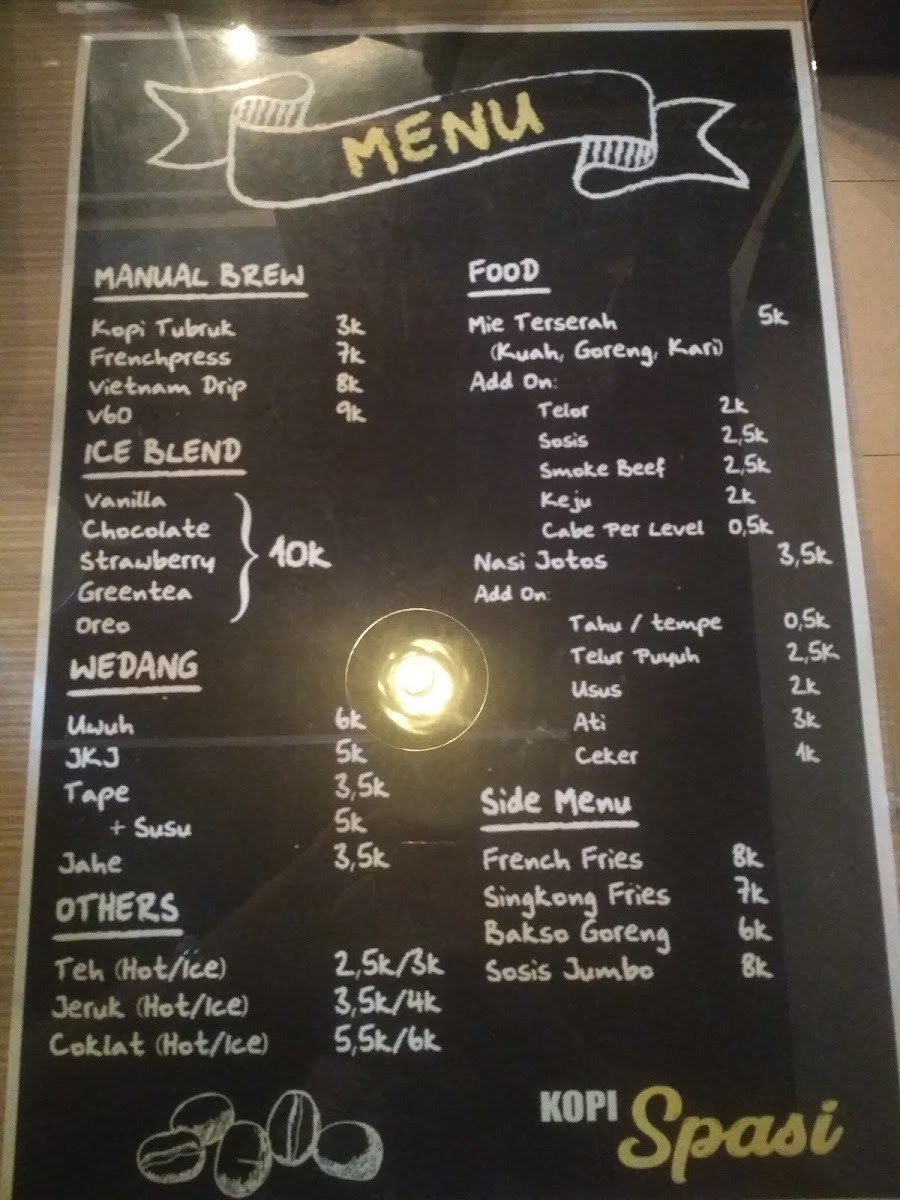 MENU
MANUAL BREW
Kopi Tubruk 3k
Frenchpress 7k
Vietnam Drip 8k
V60 9k
ICE BLEND
Vanilla
Chocolate
Strawberry
Greentea
Oreo
10k
WEDANG
Uwuh 6k
JKJ 5k
Tape 3,5k
+ Susu 5k
Jahe 3,5k
OTHERS
Teh (Hot/Ice) 2,5k/3k
Jeruk (Hot/Ice) 3,5k/4k
Coklat (Hot/Ice) 5,5k/6k
FOOD
Mie Terserah 5k
(Kuah, Goreng, Kari)
Add On:
Telor 2k
Sosis 2,5k
Smoke Beef 2,5k
Keju 2k
Cabe Per Level 0,5k
Nasi Jotos 3,5k
Add On:
Tahu / tempe 0,5k
Telur Puyuh 2,5K
Usus 2k
Ati 3k
Ceker 1k
Side Menu
French Fries 8k
Singkong Fries 7k
Bakso Goreng 6k
Sosis Jumbo 8k
KOPI Spasi